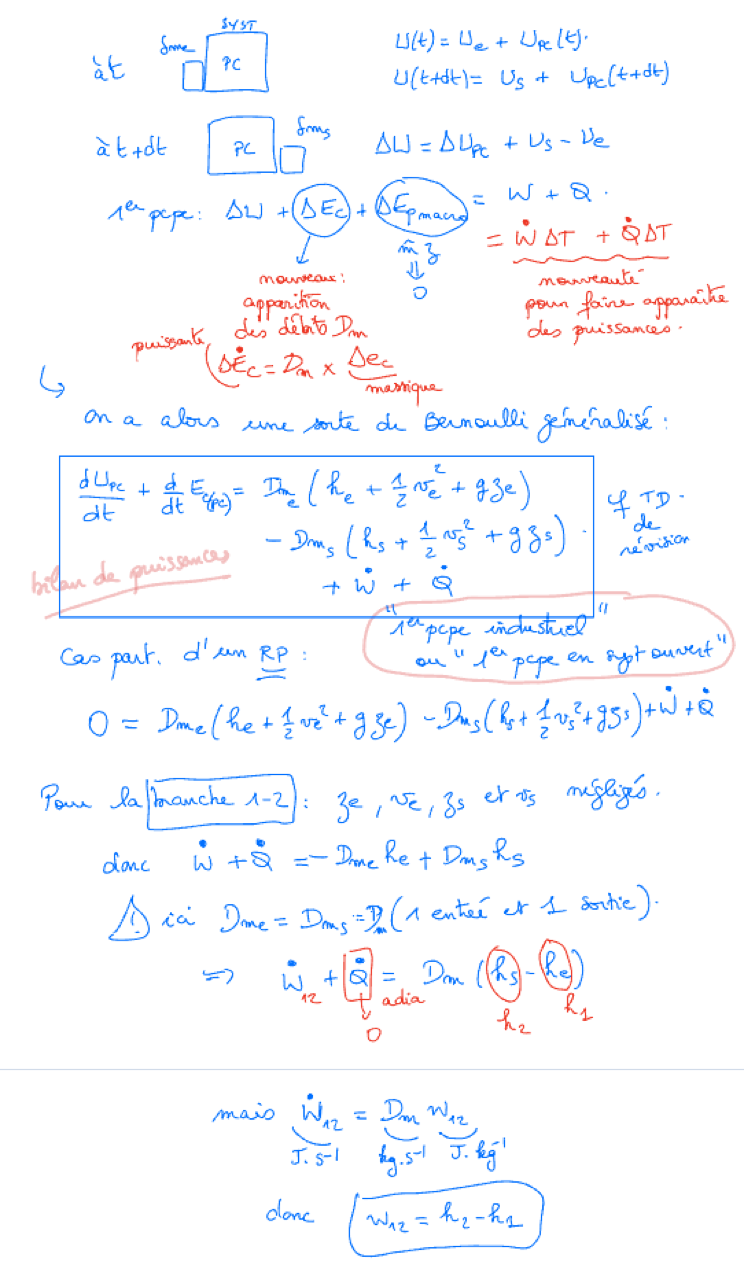 SYST
δme
à t
PC
U(t) = Ue + UPC(t).
U(t+dt) = Us + UPC(t+dt)
à t+dt
PC
δms
ΔU = ΔUPC + Us - Ue
1er pcpe : ΔU + ΔEc + ΔEp macro = W + Q.
m̃ z
⇓
0
= Ẇ ΔT + Q̇ ΔT
nouveaux :
apparition
des débits Dm
nouveauté
pour faire apparaître
des puissances.
puissante
(ΔĖc = Dm × Δec
massique
↳
on a alors une sorte de Bernoulli généralisé :
dUPC/dt + d/dt Ec(PC) = Dme (he + 1/2 ve² + g ze)
- Dms (hs + 1/2 vs² + g zs).
+ Ẇ + Q̇
cf TD.
de
révision
bilan de puissances
"1er pcpe industriel"
ou "1er pcpe en syst ouvert"
Cas part. d'un RP :
0 = Dme (he + 1/2 ve² + g ze) - Dms (hs + 1/2 vs² + g zs) + Ẇ + Q̇
Pour la branche 1-2 : ze, ve, zs et vs négligés.
donc Ẇ + Q̇ = - Dme he + Dms hs
⚠ ici Dme = Dms = Dm (1 entrée et 1 sortie).
⇒ Ẇ12 + Q̇ = Dm (hs - he)
adia
0
h2
h1
mais Ẇ12 = Dm w12
J.s-1 kg.s-1 J.kg-1
donc w12 = h2 - h1